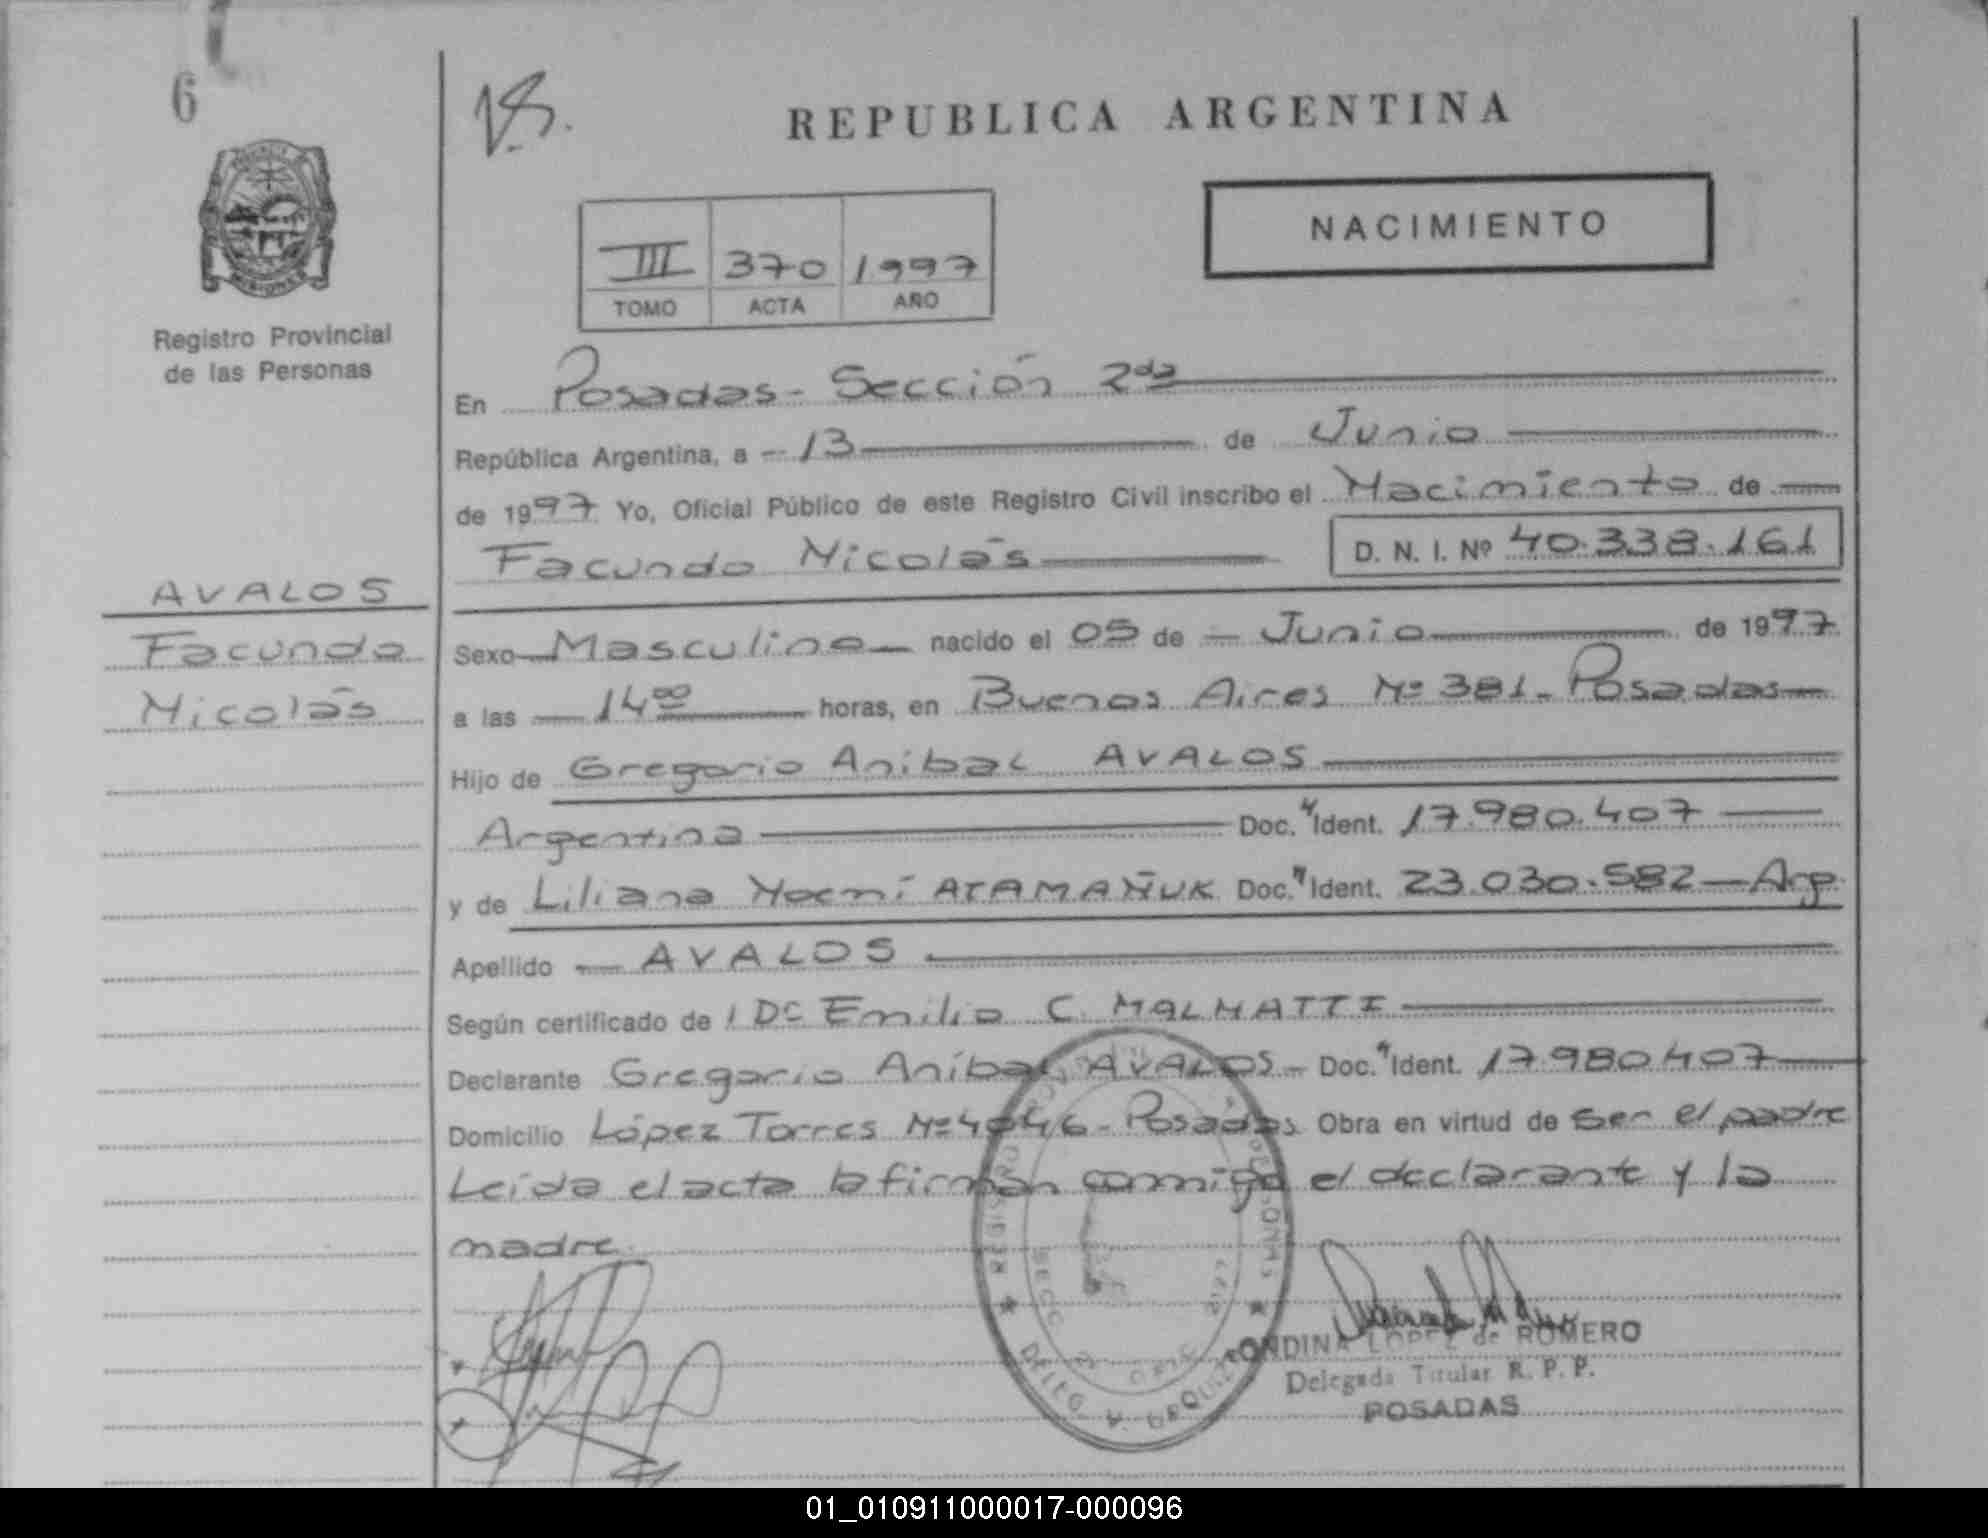 6
REPUBLICA ARGENTINA
NACIMIENTO
III 370 1997
TOMO ACTA AÑO
MISIONES
Registro Provincial
de las Personas
En Posadas - Sección 2da
República Argentina, a 13 de Junio
de 1997 Yo, Oficial Público de este Registro Civil inscribo el Nacimiento de
Facundo Nicolás D. N. I. Nº 40.338.161
AVALOS
Facundo
Nicolás
Sexo Masculino nacido el 05 de Junio de 1997
a las 14 00 horas, en Buenos Aires Nº 381 - Posadas
Hijo de Gregorio Anibal AVALOS
Argentina Doc. Ident. 17.980.407
y de Liliana Noemí ATAMAÑUK Doc. Ident. 23.030.582 - Arg.
Apellido AVALOS
Según certificado de Emilio C. MALNATTI
Declarante Gregorio Aníbal AVALOS - Doc. Ident. 17.980.407
Domicilio López Torres Posadas Obra en virtud de ser el padre
Leída el acta la firman conmigo el declarante y la
madre.
ONDINA LOPEZ de ROMERO
Delegada Titular R. P. P.
POSADAS
01_010911000017-000096